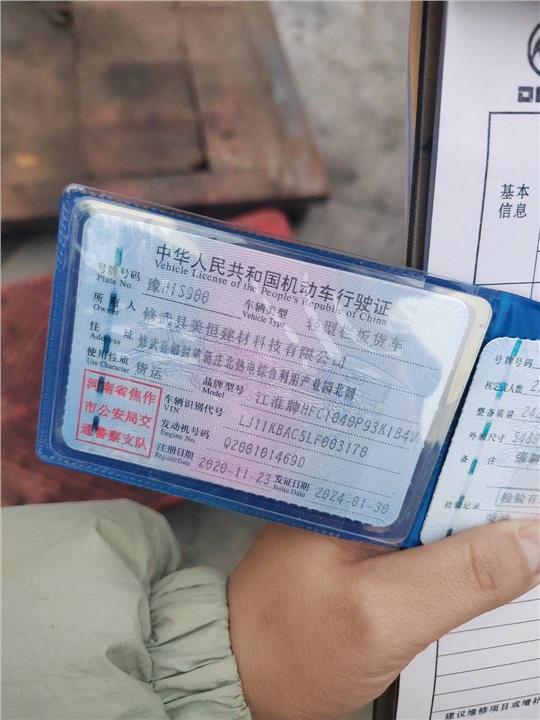 中华人民共和国机动车行驶证
Vehicle License of the People's Republic of China
号牌号码 豫HIS900 车辆类型 轻型栏板货车
Plate No. Vehicle Type
所有人 修武县美恒建材科技有限公司
Owner
住址 修武县郇封镇葛庄北热电综合利用产业园北侧
Address
使用性质 货运 品牌型号 江淮牌HFC1040P93K1B4V
Use Character Model
河南省焦作
市公安局交
通警察支队
车辆识别代号 LJ11KBAC5LF003170
VIN
发动机号码 Q200101469D
Engine No.
注册日期 2020-11-23 发证日期 2024-01-30
Register Date Issue Date
基本
信息
号牌号码
核定载人数
整备质量
外廓尺寸
备注
检验记录
检验有
建议维修项目或增补